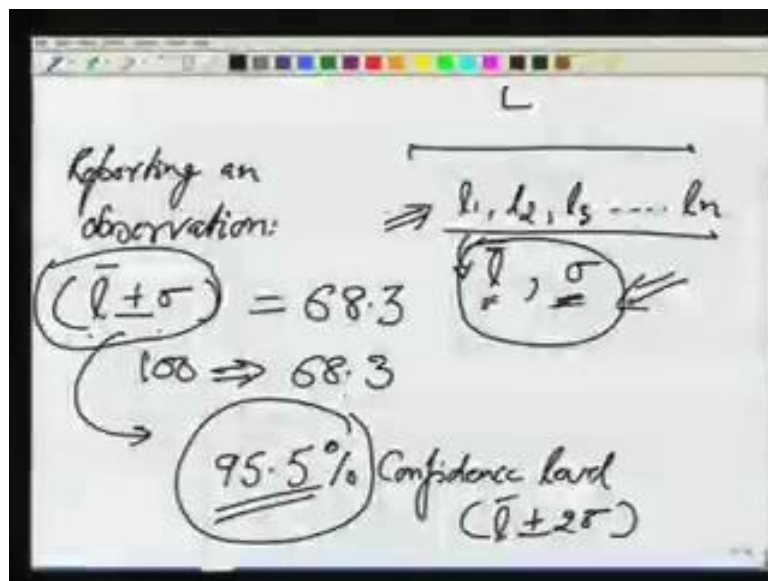 L
Reporting an
observation:
⇒ l₁, l₂, l₃ ---- ln
l̄, σ
(l̄ ± σ) = 68.3
100 ⇒ 68.3
95.5% Confidence level
(l̄ ± 2σ)